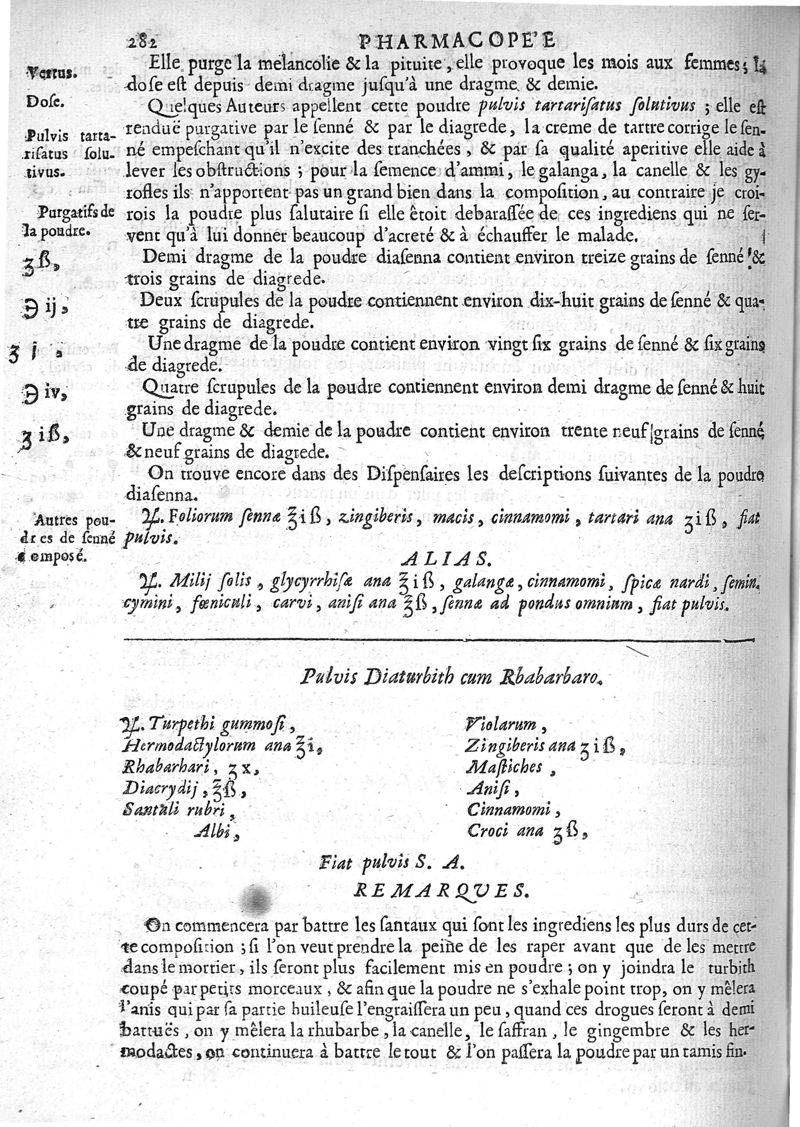 282 PHARMACOPE'E
Vertus.
Elle purge la mélancolie & la pituite, elle provoque les mois aux femmes; la
Dose.
dose est depuis demi dragme jusqu'à une dragme & demie.
Quelques Auteurs appellent cette poudre pulvis tartarisatus solutivus ; elle est
Pulvis tarta-
risatus solu-
tivus.
renduë purgative par le senné & par le diagrede, la creme de tartre corrige le sen-
né empeschant qu'il n'excite des tranchées, & par sa qualité aperitive elle aide à
lever ses obstructions ; pour la semence d'ammi, le galanga, la canelle & les gy-
rofles ils n'apportent pas un grand bien dans la composition, au contraire je croi-
Purgatifs de
la poudre.
rois la poudre plus salutaire si elle êtoit debarassée de ces ingrediens qui ne ser-
vent qu'à lui donner beaucoup d'acreté & à échauffer le malade.
ʒß,
Demi dragme de la poudre diasenna contient environ treize grains de senné &
trois grains de diagrede.
℈ ij,
Deux scrupules de la poudre contiennent environ dix-huit grains de senné & qua-
tre grains de diagrede.
ʒ j,
Une dragme de la poudre contient environ vingt six grains de senné & six grains
de diagrede.
℈ iv,
Quatre scrupules de la poudre contiennent environ demi dragme de senné & huit
grains de diagrede.
ʒ iß,
Une dragme & demie de la poudre contient environ trente neuf grains de senné
& neuf grains de diagrede.
On trouve encore dans des Dispensaires les descriptions suivantes de la poudre
diasenna.
Autres pou-
dres de senné
composé.
♃. Foliorum sennæ ℥iß, zingiberis, macis, cinnamomi, tartari ana ʒiß, fiat
pulvis.
ALIAS.
♃. Milij solis, glycyrrhisæ ana ℥iß, galangæ, cinnamomi, spicæ nardi, semin.
cymini, fœniculi, carvi, anisi ana ℥ß, sennæ ad pondus omnium, fiat pulvis.
Pulvis Diaturbith cum Rhabarbaro.
♃. Turpethi gummosi,
Hermodactylorum ana ℥i,
Rhabarbari, ʒx,
Diacrydij, ℥ß,
Santali rubri,
Albi,
Violarum,
Zingiberis ana ʒiß,
Mastiches,
Anisi,
Cinnamomi,
Croci ana ʒß,
Fiat pulvis S. A.
REMARQUES.
On commencera par battre les santaux qui sont les ingrediens les plus durs de cet-
te composition ; si l'on veut prendre la peine de les raper avant que de les mettre
dans le mortier, ils seront plus facilement mis en poudre ; on y joindra le turbith
coupé par petits morceaux, & afin que la poudre ne s'exhale point trop, on y mêlera
l'anis qui par sa partie huileuse l'engraissera un peu, quand ces drogues seront à demi
battuës, on y mêlera la rhubarbe, la canelle, le saffran, le gingembre & les her-
modactes, on continuera à battre le tout & l'on passera la poudre par un tamis fin.